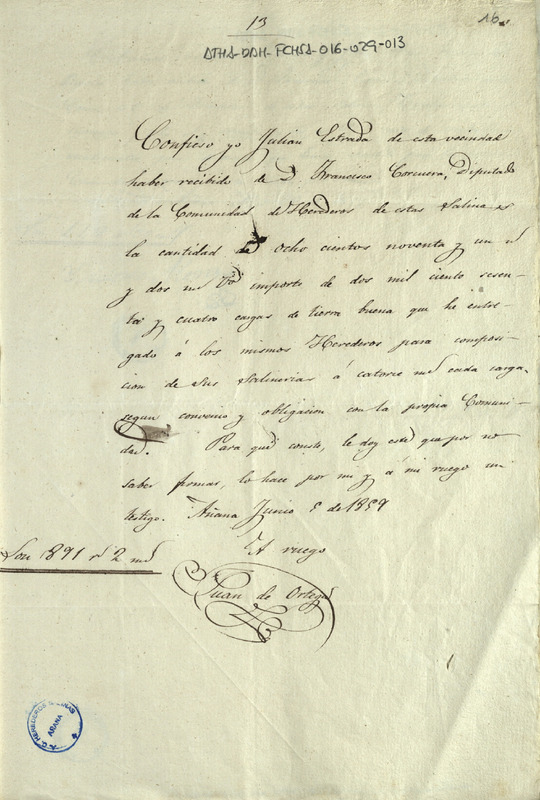 13
16
ATHA-DAH-FCHSA-016-029-013
Confieso yo Julian Estrada de esta vecindad
haber recibido de D. Francisco Corcuera, Diputado
de la Comunidad de Herederos de estas Salinas
la cantidad de ocho cientos noventa y un r.s
y dos m.s V.on importe de dos mil ciento sesen-
ta y cuatro cargas de tierra buena que he entre-
gado á los mismos Herederos para composi-
cion de sus Salinerias á catorce m.s cada carga,
segun convenio y obligacion con la propia Comuni-
dad. Para que conste, le doy este que por no
saber firmar, lo hace por mi y á mi ruego un
testigo. Añana Junio 5 de 1859
A ruego
Son 1891 r.s 2 m.s
Juan de Ortega
A. G. HEREDEROS SALINAS
AÑANA